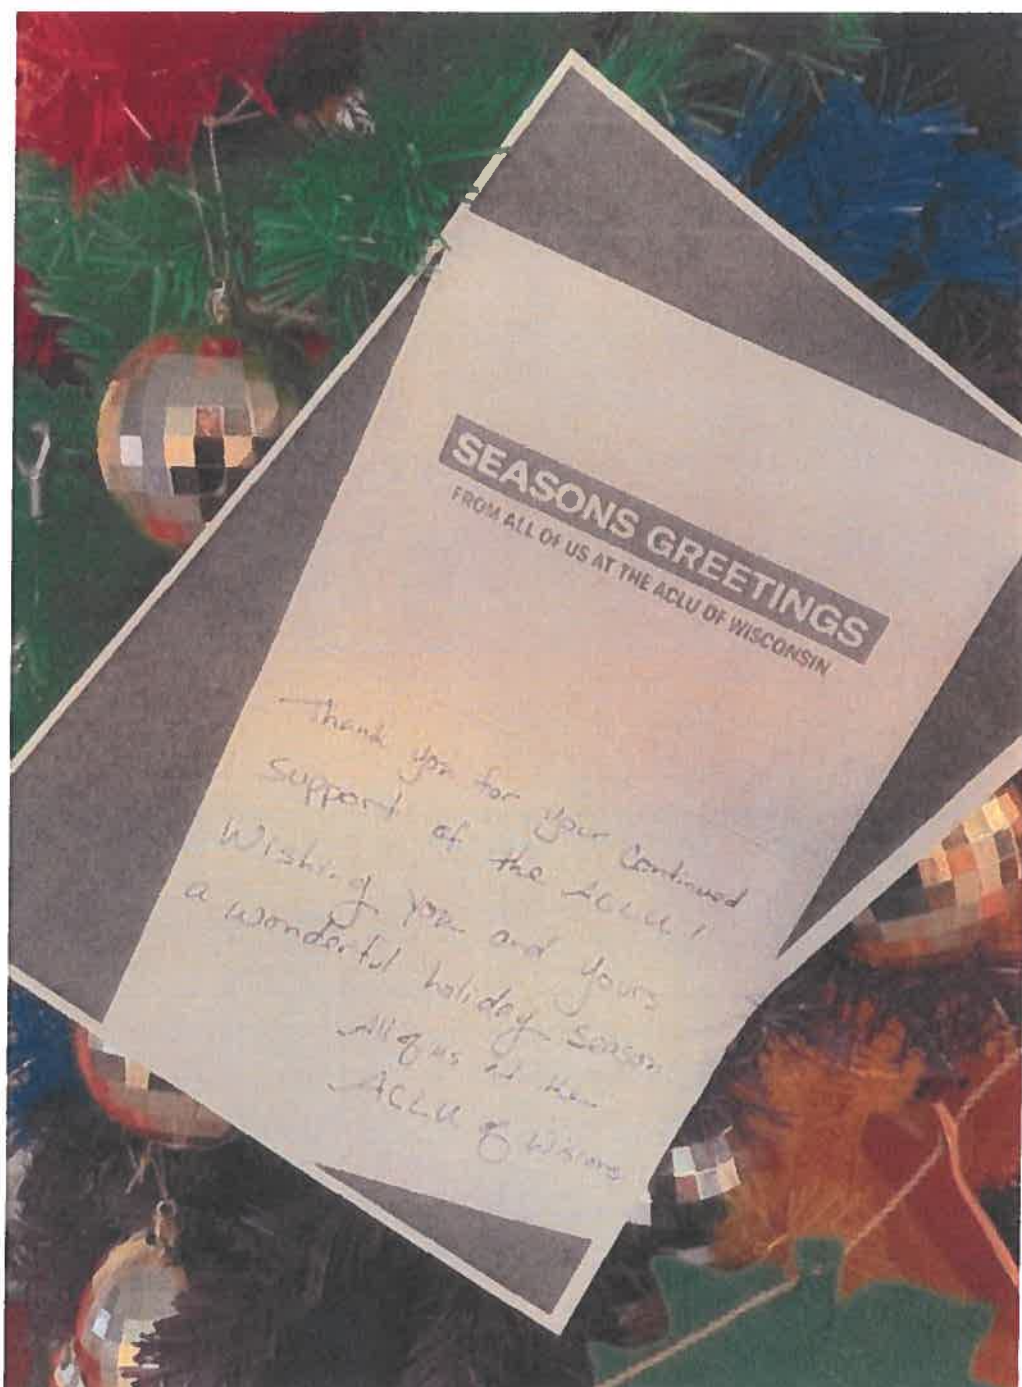 SEASONS GREETINGS
FROM ALL OF US AT THE ACLU OF WISCONSIN
Thank you for your Continued
Support of the ACLU!
Wishing you and yours
a wonderful holiday season
All of us at the
ACLU of